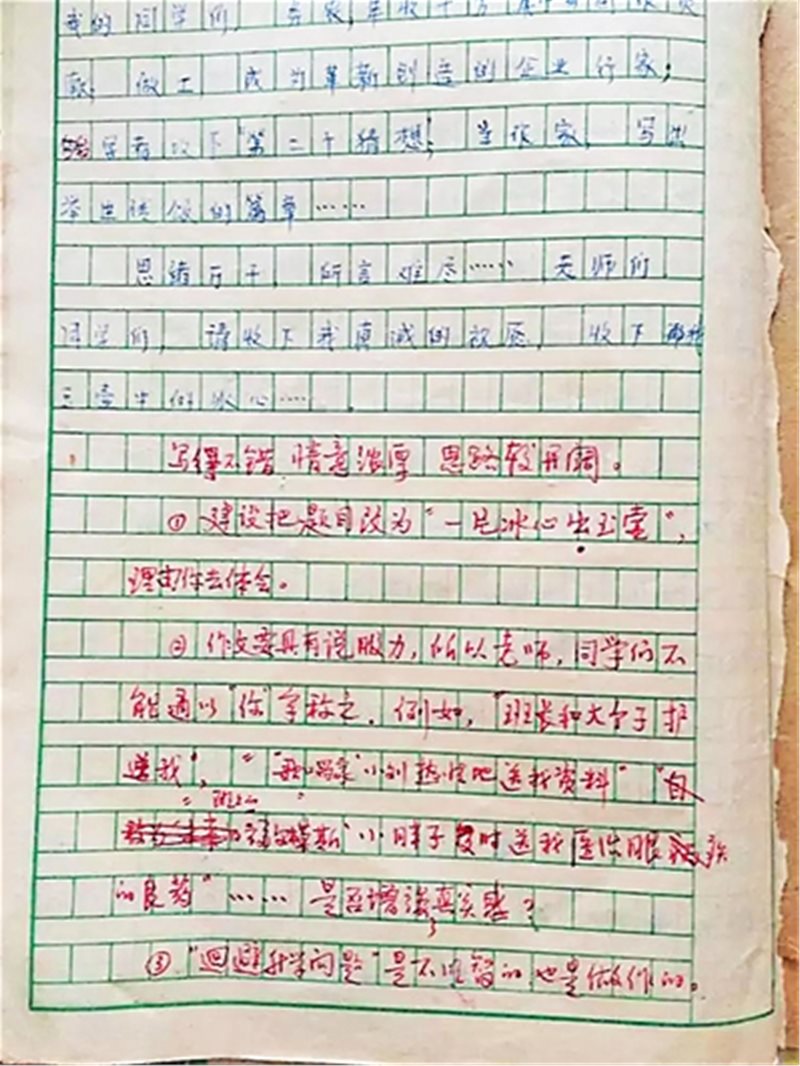 我的同学们，
做工，成为革新创造的企业行家；
学者攻下"第二十猜想；当作家，写出
的篇章……
思绪万千 所言难尽……老师们
同学们，请收下我真诚的祝愿，收下
玉壶中的冰心……
写得不错 情意浓厚 思路较开阔。
①建议把题目改为"一片冰心出玉壶"，
理由你去体会。
②作文要具有说服力，所以老师，同学们不
能通以"你"字称之，例如，"班长和大个子护
送我"，"小刘热情地送我资料"
班上 小胖子及时送我医治眼疾
的良药"……是否增强真实感？
③"回避我学问题"是不明智的也是做作的。